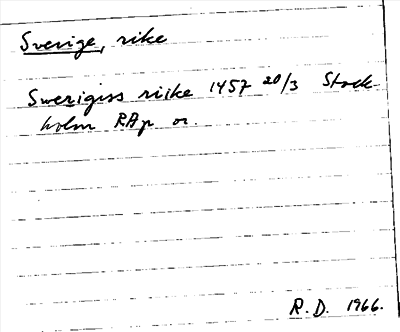 Sverige, rike
Swerigiss riike 1457 20/3 Stock-
holm RAp or.
R.D. 1966.